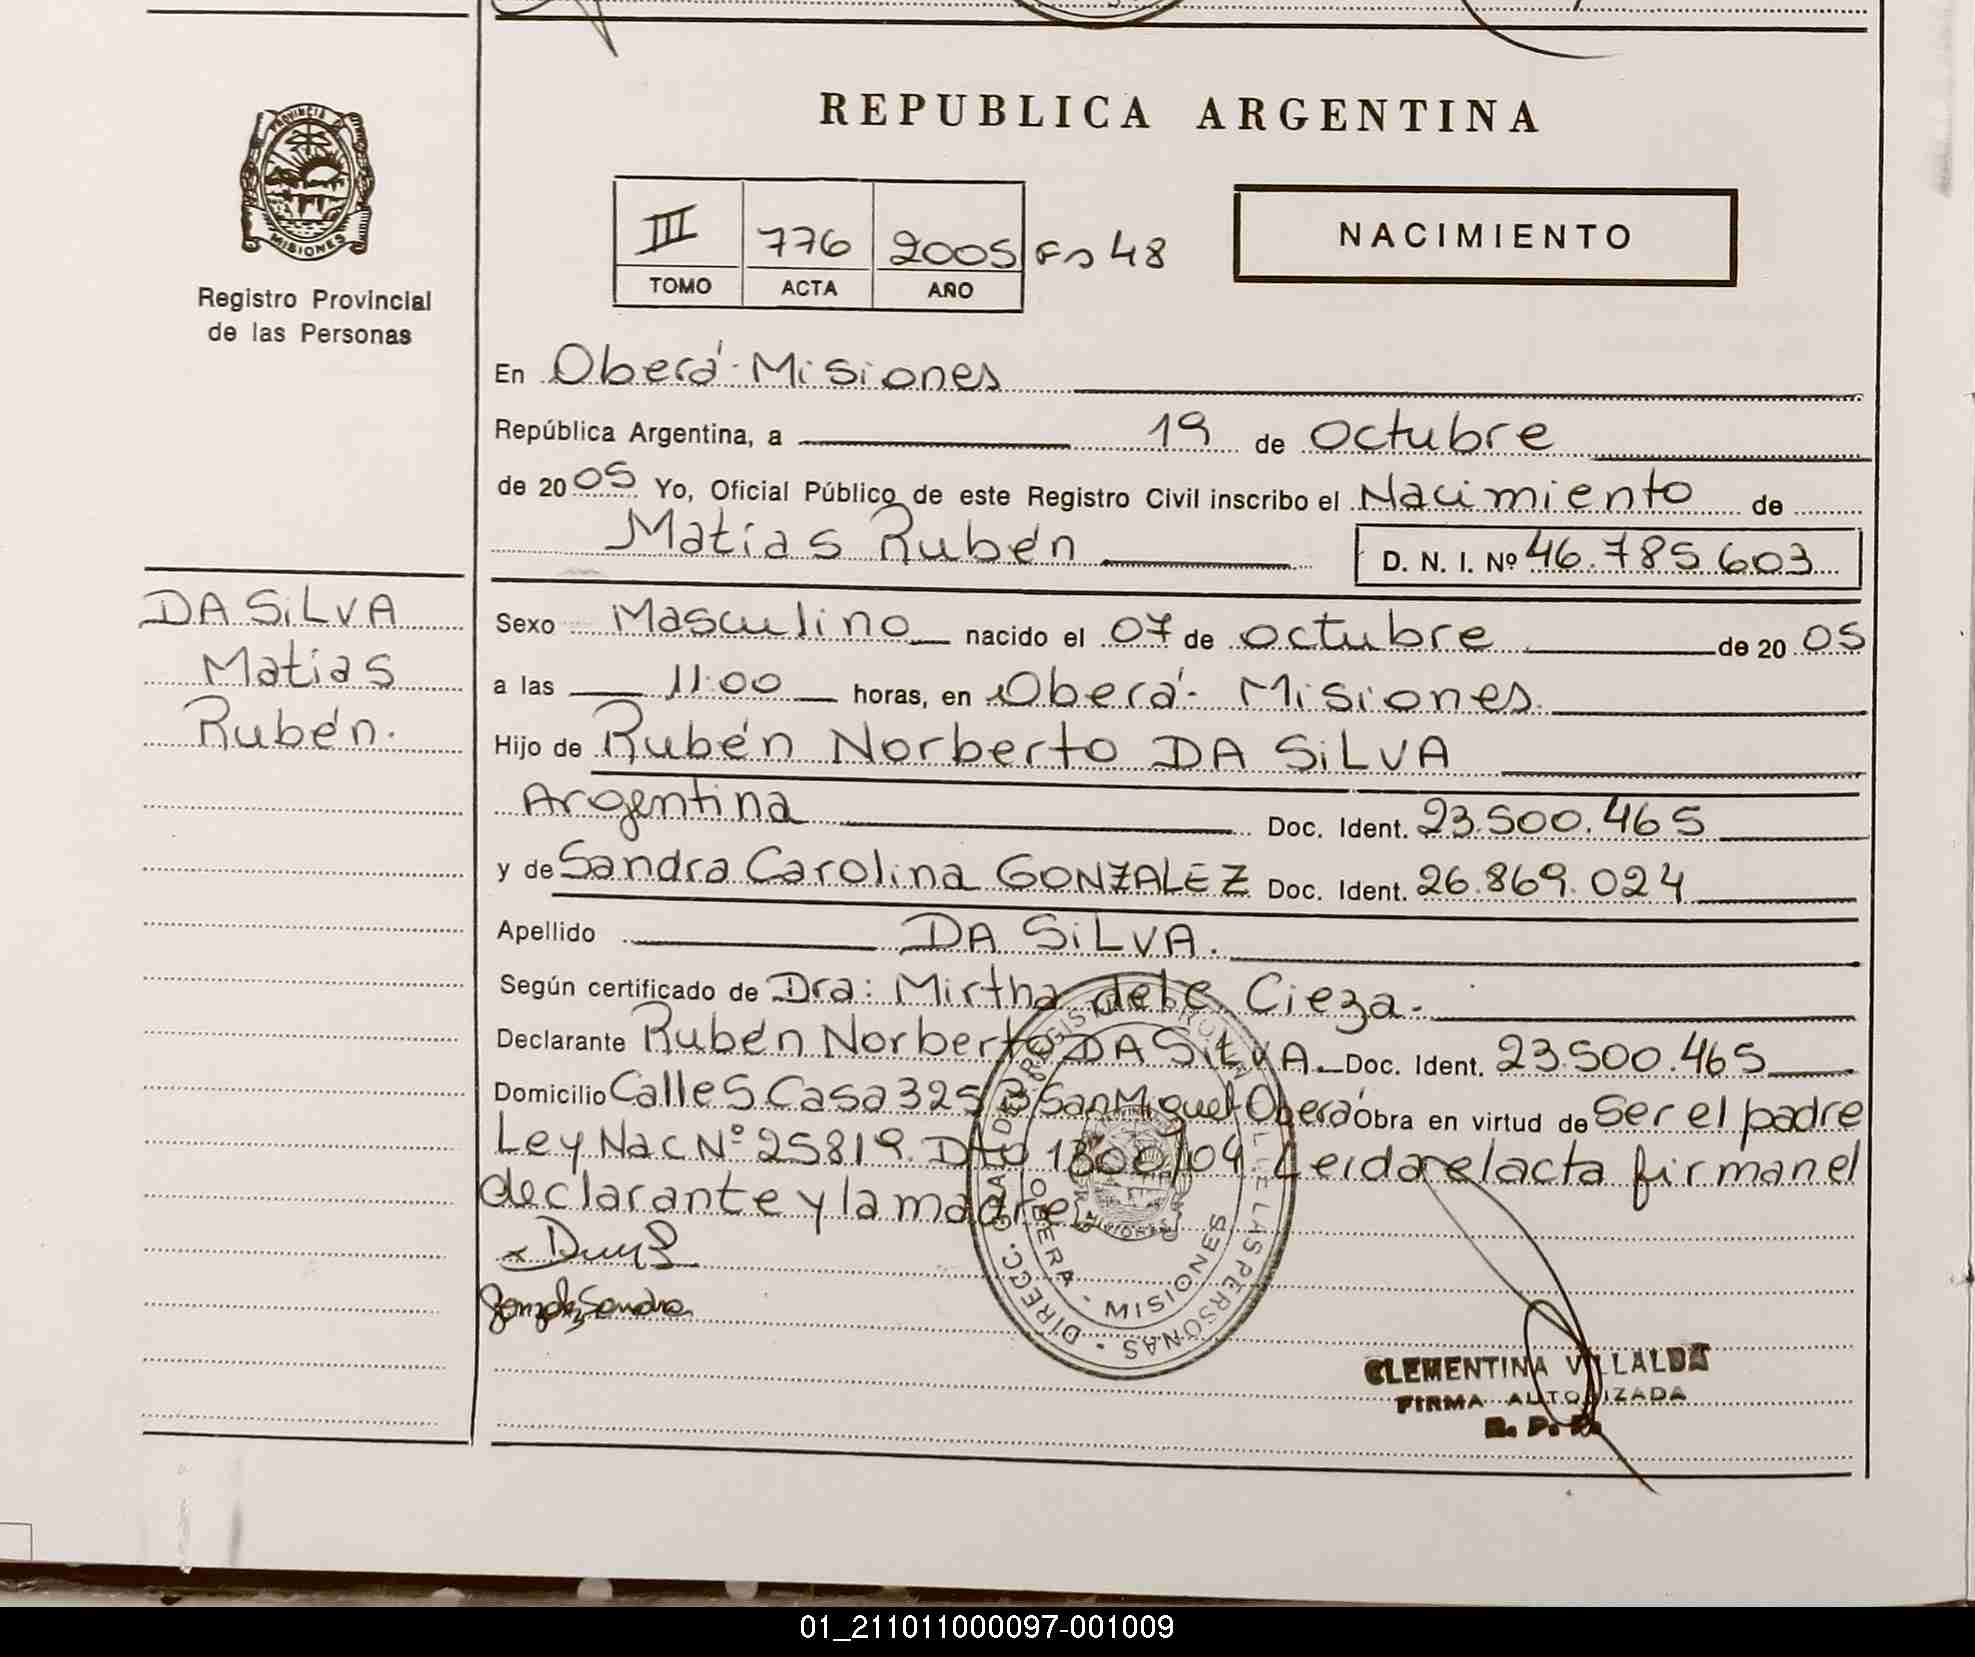 REPUBLICA ARGENTINA
PROVINCIA DE
MISIONES
Registro Provincial
de las Personas
III 776 2005 Fº 48
TOMO ACTA AÑO
NACIMIENTO
En Oberá - Misiones
República Argentina, a 19 de octubre
de 2005 Yo, Oficial Público de este Registro Civil inscribo el Nacimiento de
Matias Rubén D. N. I. Nº 46.785.603
DA SiLVA
Matias
Rubén.
Sexo Masculino nacido el 07 de octubre de 2005
a las 11:00 horas, en Oberá - Misiones.
Hijo de Rubén Norberto DA SiLVA
Argentina Doc. Ident. 23.500.465
y de Sandra Carolina GONZALEZ Doc. Ident. 26.869.024
Apellido DA SiLVA.
Según certificado de Dra: Mirtha Cieza.
Declarante Rubén Norberto DA SiLVA Doc. Ident. 23.500.465
Domicilio Calle 5 Casa 325 B San Miguel Oberá Obra en virtud de Ser el padre
Ley Nac Nº 25819. Dto 1300/04 Leida el acta firman el
declarante y la madre
Sandra
DIRECC. GRAL. DEL REGISTRO DE LAS PERSONAS
OBERA - MISIONES
CLEMENTINA VILLALBA
FIRMA AUTORIZADA
R. P. P.
01_211011000097-001009